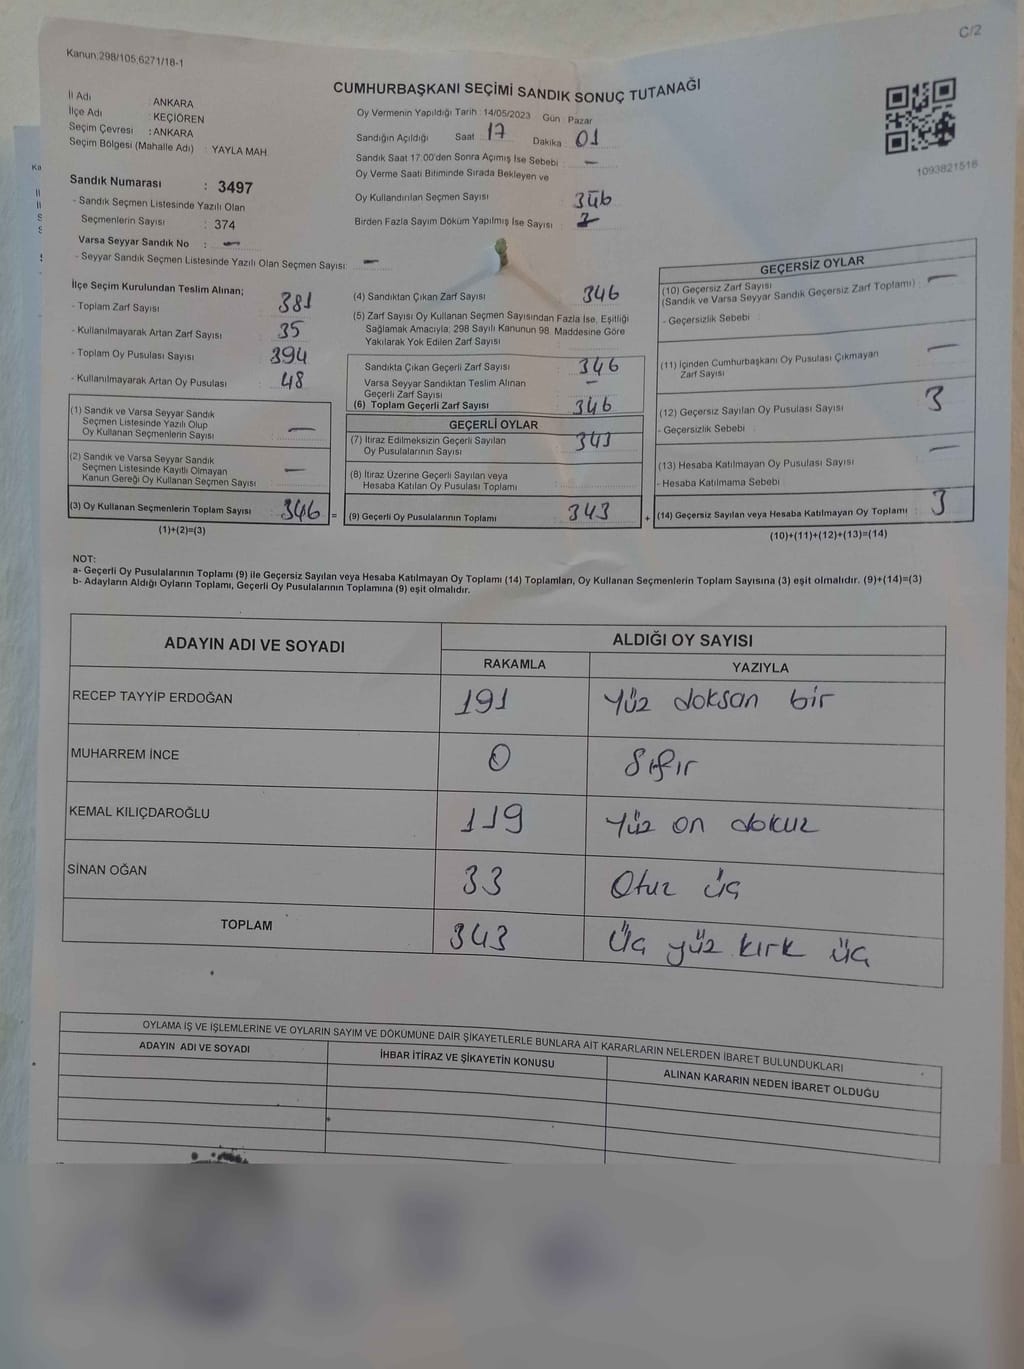 C/2
Kanun:298/105,6271/18-1
CUMHURBAŞKANI SEÇİMİ SANDIK SONUÇ TUTANAĞI
İl Adı : ANKARA
İlçe Adı : KEÇİÖREN
Seçim Çevresi : ANKARA
Seçim Bölgesi (Mahalle Adı) : YAYLA MAH.
Sandık Numarası : 3497
- Sandık Seçmen Listesinde Yazılı Olan
Seçmenlerin Sayısı : 374
Varsa Seyyar Sandık No : —
- Seyyar Sandık Seçmen Listesinde Yazılı Olan Seçmen Sayısı: —
Oy Vermenin Yapıldığı Tarih : 14/05/2023 Gün : Pazar
Sandığın Açıldığı Saat 17 Dakika 01
Sandık Saat 17.00'den Sonra Açılmış İse Sebebi : —
Oy Verme Saati Bitiminde Sırada Bekleyen ve
Oy Kullandırılan Seçmen Sayısı : 346
Birden Fazla Sayım Döküm Yapılmış İse Sayısı :
1093821516
İlçe Seçim Kurulundan Teslim Alınan;
- Toplam Zarf Sayısı : 381
- Kullanılmayarak Artan Zarf Sayısı : 35
- Toplam Oy Pusulası Sayısı : 394
- Kullanılmayarak Artan Oy Pusulası : 48
(1) Sandık ve Varsa Seyyar Sandık
Seçmen Listesinde Yazılı Olup
Oy Kullanan Seçmenlerin Sayısı : —
(2) Sandık ve Varsa Seyyar Sandık
Seçmen Listesinde Kayıtlı Olmayan
Kanun Gereği Oy Kullanan Seçmen Sayısı : —
(3) Oy Kullanan Seçmenlerin Toplam Sayısı : 346
(1)+(2)=(3)
(4) Sandıktan Çıkan Zarf Sayısı : 346
(5) Zarf Sayısı Oy Kullanan Seçmen Sayısından Fazla İse, Eşitliği
Sağlamak Amacıyla; 298 Sayılı Kanunun 98. Maddesine Göre
Yakılarak Yok Edilen Zarf Sayısı :
Sandıkta Çıkan Geçerli Zarf Sayısı : 346
Varsa Seyyar Sandıktan Teslim Alınan
Geçerli Zarf Sayısı : —
(6) Toplam Geçerli Zarf Sayısı : 346
GEÇERLİ OYLAR
(7) İtiraz Edilmeksizin Geçerli Sayılan
Oy Pusulalarının Sayısı : 343
(8) İtiraz Üzerine Geçerli Sayılan veya
Hesaba Katılan Oy Pusulası Toplamı :
= (9) Geçerli Oy Pusulalarının Toplamı : 343
GEÇERSİZ OYLAR
(10) Geçersiz Zarf Sayısı
(Sandık ve Varsa Seyyar Sandık Geçersiz Zarf Toplamı) : —
- Geçersizlik Sebebi :
(11) İçinden Cumhurbaşkanı Oy Pusulası Çıkmayan
Zarf Sayısı : —
(12) Geçersiz Sayılan Oy Pusulası Sayısı : 3
- Geçersizlik Sebebi :
(13) Hesaba Katılmayan Oy Pusulası Sayısı : —
- Hesaba Katılmama Sebebi :
+ (14) Geçersiz Sayılan veya Hesaba Katılmayan Oy Toplamı : 3
(10)+(11)+(12)+(13)=(14)
NOT:
a- Geçerli Oy Pusulalarının Toplamı (9) ile Geçersiz Sayılan veya Hesaba Katılmayan Oy Toplamı (14) Toplamları, Oy Kullanan Seçmenlerin Toplam Sayısına (3) eşit olmalıdır. (9)+(14)=(3)
b- Adayların Aldığı Oyların Toplamı, Geçerli Oy Pusulalarının Toplamına (9) eşit olmalıdır.
ADAYIN ADI VE SOYADI ALDIĞI OY SAYISI
RAKAMLA YAZIYLA
RECEP TAYYİP ERDOĞAN 191 Yüz doksan bir
MUHARREM İNCE 0 Sıfır
KEMAL KILIÇDAROĞLU 119 Yüz on dokuz
SİNAN OĞAN 33 Otuz üç
TOPLAM 343 Üç yüz kırk üç
OYLAMA İŞ VE İŞLEMLERİNE VE OYLARIN SAYIM VE DÖKÜMÜNE DAİR ŞİKAYETLERLE BUNLARA AİT KARARLARIN NELERDEN İBARET BULUNDUKLARI
ADAYIN ADI VE SOYADI İHBAR İTİRAZ VE ŞİKAYETİN KONUSU ALINAN KARARIN NEDEN İBARET OLDUĞU